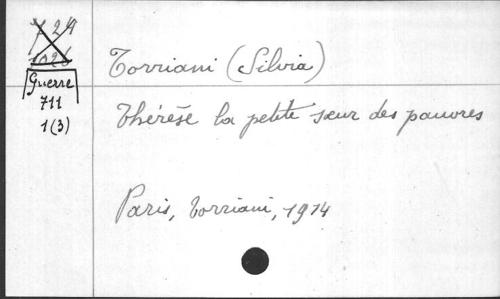 Guerre
711
1(3)
Torriani (Silvia)
Thérèse la petite sœur des pauvres
Paris, Torriani, 1914